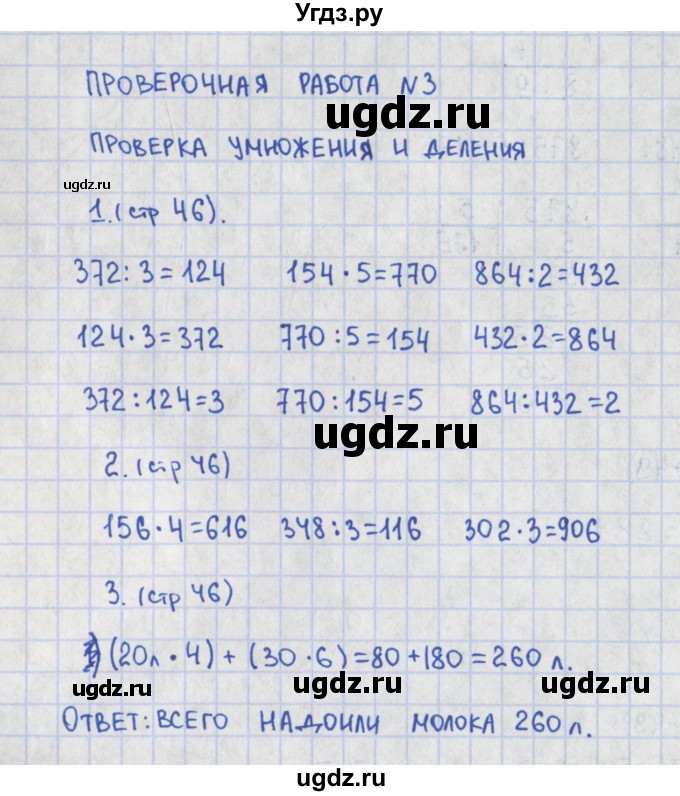 Угдз.ру
ПРОВЕРОЧНАЯ РАБОТА N3
ugdz.ru
ПРОВЕРКА УМНОЖЕНИЯ И ДЕЛЕНИЯ
ugdz.ru
1. (стр 46).
372 : 3 = 124 154 · 5 = 770 864 : 2 = 432
124 · 3 = 372 770 : 5 = 154 432 · 2 = 864
372 : 124 = 3 770 : 154 = 5 864 : 432 = 2
ugdz.ru
2. (стр 46)
156 · 4 = 616 348 : 3 = 116 302 · 3 = 906
3. (стр 46)
(20л · 4) + (30 · 6) = 80 + 180 = 260 л.
ugdz.ru ugdz.ru ugdz.ru
ОТВЕТ: ВСЕГО НАДОИЛИ МОЛОКА 260 л.
ugdz.ru